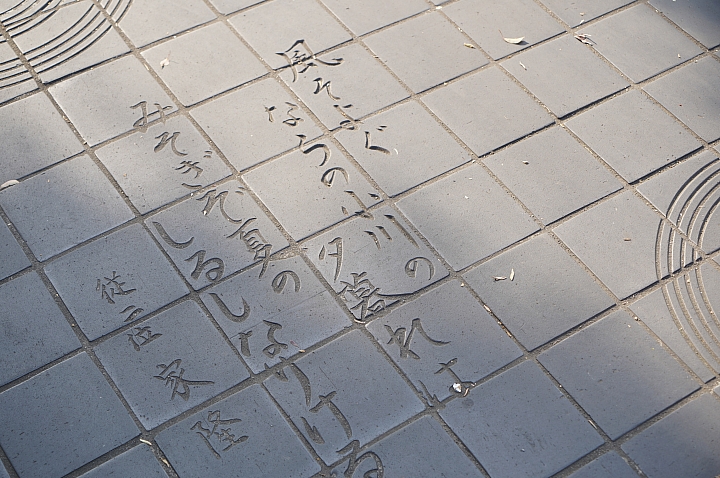 風そよぐ
ならの小川の
夕暮れは
みそぎぞ夏の
しるしなりける
従二位家隆